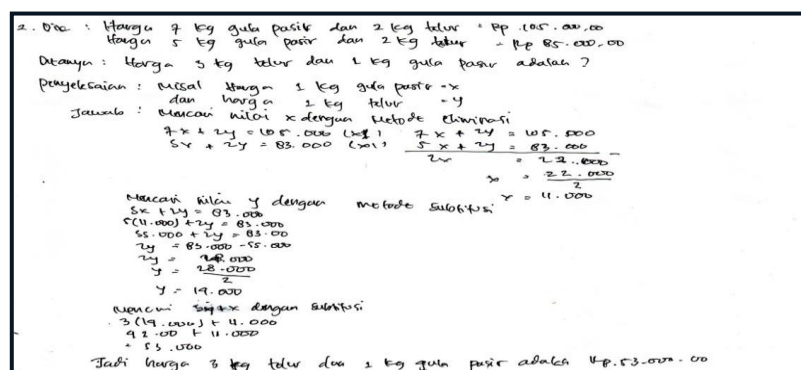 2. Dik : Harga 7 kg gula pasir dan 2 kg telur = Rp. 105.000,00
Harga 5 kg gula pasir dan 2 kg telur = Rp 85.000,00
Ditanya : Harga 3 kg telur dan 1 kg gula pasir adalah ?
Penyelesaian : Misal Harga 1 kg gula pasir = x
dan harga 1 kg telur = y
Jawab : Mencari nilai x dengan Metode Eliminasi
7x + 2y = 105.000 (x1) 7x + 2y = 105.000
5x + 2y = 83.000 (x1) 5x + 2y = 83.000 -
2x = 22.000
x = 22.000
2
x = 11.000
Mencari nilai y dengan metode Subtitusi
5x + 2y = 83.000
5(11.000) + 2y = 83.000
55.000 + 2y = 83.00
2y = 83.000 - 55.000
2y = 28.000
y = 28.000
2
y = 14.000
Mencari dengan Subtitusi
3(14.000) + 11.000
42.00 + 11.000
= 53.000
Jadi harga 3 kg telur dan 1 kg gula pasir adalah Rp.53.000.00